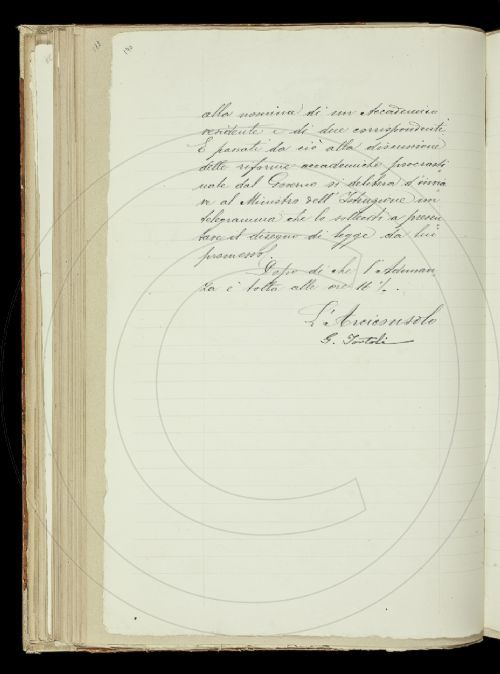 alla nomina di un Accademico
residente e di due corrispondenti.
E passati da ciò alla discussione
delle riforme accademiche procrasti
nate dal Governo si delibera d'invia
re al Ministro dell'Istruzione un
telegramma che lo solleciti a presen
tare il disegno di legge da lui
promesso.
Dopo di che l'Adunan
za è tolta alle ore 16 ½.
L'Arciconsolo
G. Tortoli